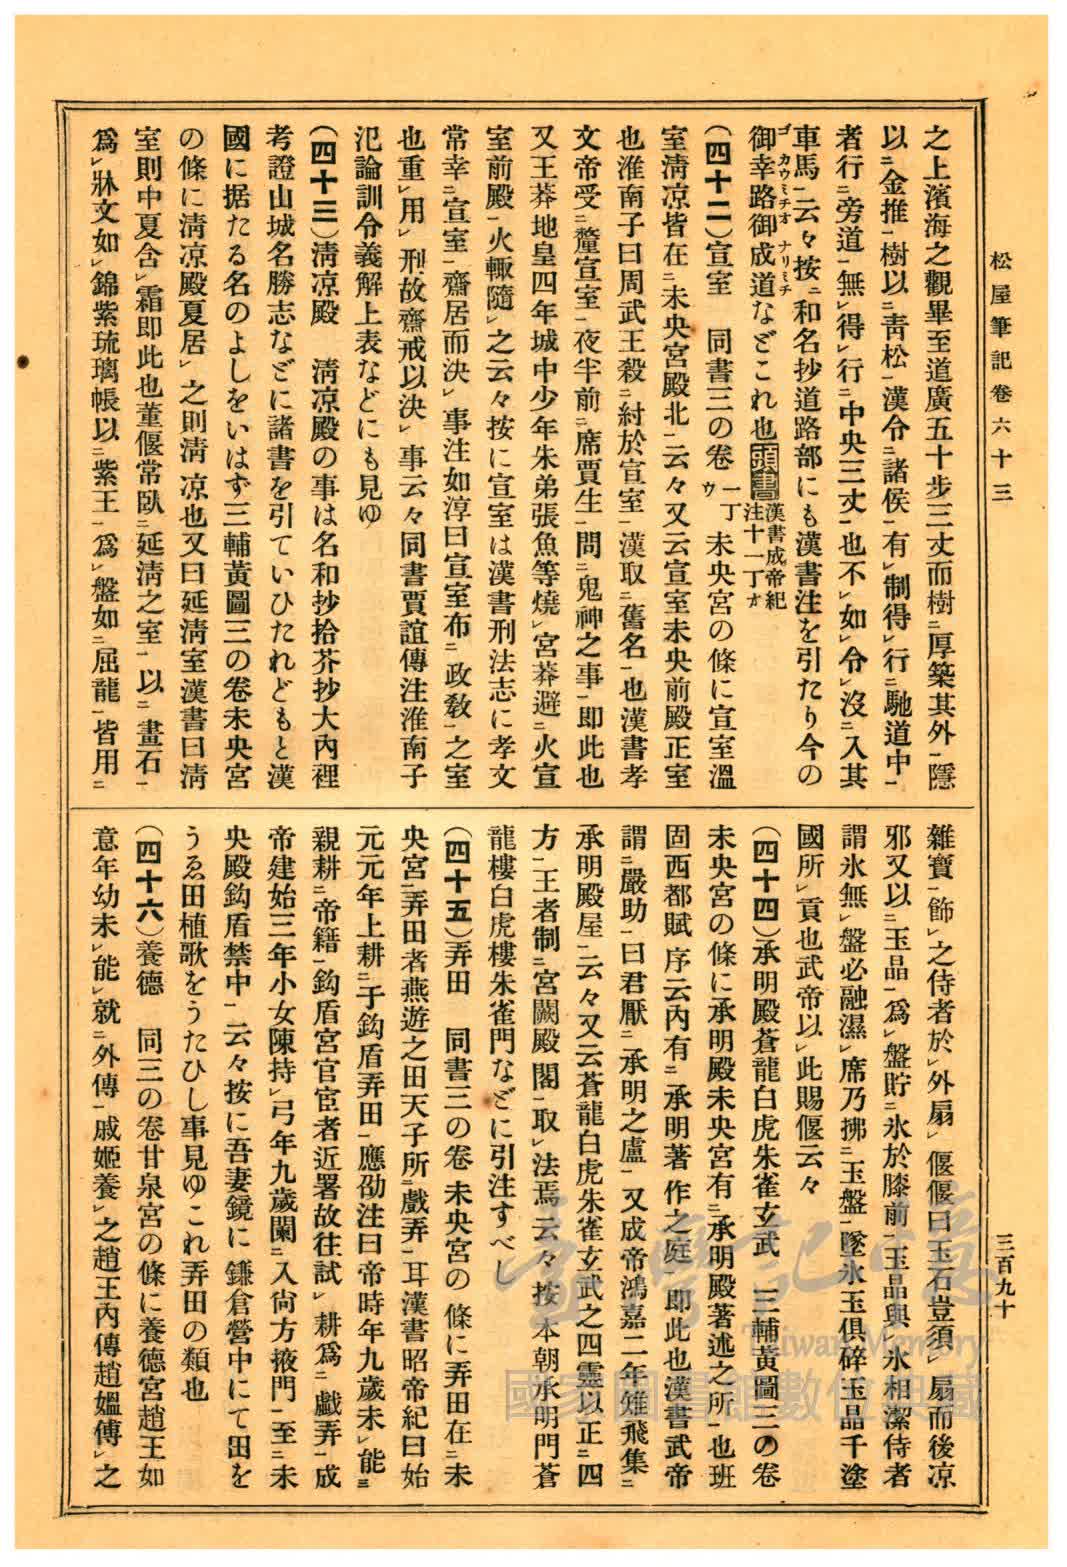 松屋筆記卷六十三
三百九十
之上濱海之觀畢至道廣五十步三丈而樹ニ厚築其外一隱
以ニ金推一樹以ニ靑松一漢令ニ諸侯一有レ制得レ行ニ馳道中一
者行ニ旁道一無レ得レ行ニ中央三丈一也不レ如レ令沒ニ入其
車馬一云々按ニ和名抄道路部にも漢書注を引たり今の
御幸路御成道などこれ也頭書漢書成帝紀注十一丁オ
ゴカウミチオナリミチ
(四十二)宣室 同書三の卷一丁ウ未央宮の條に宣室溫
室淸凉皆在ニ未央宮殿北一云々又云宣室未央前殿正室
也淮南子曰周武王殺ニ紂於宣室一漢取ニ舊名一也漢書孝
文帝受ニ釐宣室一夜半前ニ席賈生一問ニ鬼神之事一即此也
又王莽地皇四年城中少年朱弟張魚等燒レ宮莽避ニ火宣
室前殿一火輙隨レ之云々按に宣室は漢書刑法志に孝文
常幸ニ宣室一齋居而決レ事注如淳曰宣室布ニ政敎一之室
也重レ用レ刑故齋戒以決レ事云々同書賈誼傳注淮南子
氾論訓令義解上表などにも見ゆ
(四十三)淸凉殿 淸凉殿の事は名和抄拾芥抄大內裡
考證山城名勝志などに諸書を引ていひたれどもと漢
國に据たる名のよしをいはず三輔黃圖三の卷未央宮
の條に淸凉殿夏居レ之則淸凉也又曰延淸室漢書曰淸
室則中夏含レ霜即此也董偃常臥ニ延淸之室一以ニ畫石一
爲レ牀文如レ錦紫琉璃帳以ニ紫王一爲レ盤如ニ屈龍一皆用ニ
雜寶一飾レ之侍者於レ外扇レ偃偃曰玉石豈須レ扇而後凉
邪又以ニ玉晶一爲レ盤貯ニ氷於膝前一玉晶與レ氷相潔侍者
謂氷無レ盤必融濕レ席乃拂ニ玉盤一墜氷玉俱碎玉晶千塗
國所レ貢也武帝以レ此賜偃云々
(四十四)承明殿蒼龍白虎朱雀玄武 三輔黃圖三の卷
未央宮の條に承明殿未央宮有ニ承明殿著述之所一也班
固西都賦序云內有ニ承明著作之庭一即此也漢書武帝
謂ニ嚴助一曰君厭ニ承明之盧一又成帝鴻嘉二年雉飛集ニ
承明殿屋一云々又云蒼龍白虎朱雀玄武之四靈以正ニ四
方一王者制ニ宮闕殿閣一取レ法焉云々按本朝承明門蒼
龍樓白虎樓朱雀門などに引注すべし
(四十五)弄田 同書三の卷未央宮の條に弄田在ニ未
央宮一弄田者燕遊之田天子所ニ戲弄一耳漢書昭帝紀曰始
元元年上耕ニ于鈎盾弄田一應劭注曰帝時年九歲未レ能三
親耕ニ帝籍一鈎盾宮官宦者近署故往試レ耕爲ニ戲弄一成
帝建始三年小女陳持レ弓年九歲闌ニ入尙方掖門一至ニ未
央殿鈎盾禁中一云々按に吾妻鏡に鎌倉營中にて田を
うゑ田植歌をうたひし事見ゆこれ弄田の類也
(四十六)養德 同三の卷甘泉宮の條に養德宮趙王如
意年幼未レ能レ就ニ外傅一戚姬養レ之趙王內傅趙媼傅レ之
臺灣記憶
Taiwan Memory
國家圖書館數位典藏